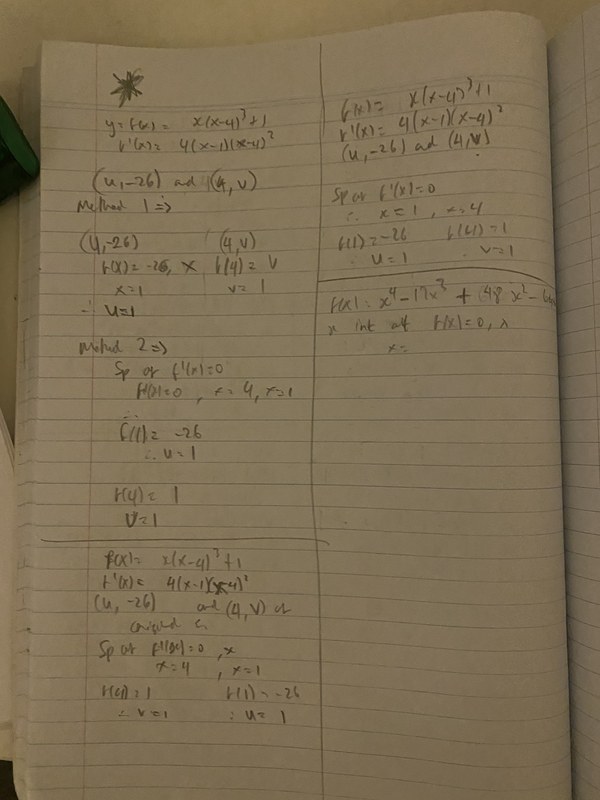 y = f(x) = x(x-4)³+1
f'(x) = 4(x-1)(x-4)²
(u, -26) and (4, v)
Method 1 =>
(u, -26) (4, v)
f(x) = -26, x f(4) = v
x=1 v = 1
∴ u=1
Method 2 =>
Sp at f'(x)=0
f'(x)=0, x=4, x=1
∴
f(1) = -26
∴ u=1
f(4) = 1
v=1
f(x) = x(x-4)³+1
f'(x) = 4(x-1)(x-4)²
(u, -26) and (4, v) of
original
Sp at f'(x)=0, x
x=4, x=1
f(4)=1 f(1)=-26
∴ v=1 ∴ u=1
f(x) = x(x-4)³+1
f'(x) = 4(x-1)(x-4)²
(u, -26) and (4, v)
Sp at f'(x)=0
∴ x=1, x=4
f(1)=-26 f(4)=1
∴ u=1 ∴ v=1
f(x) = x⁴-12x³ + (48x² -
x int at f(x)=0, x
x=